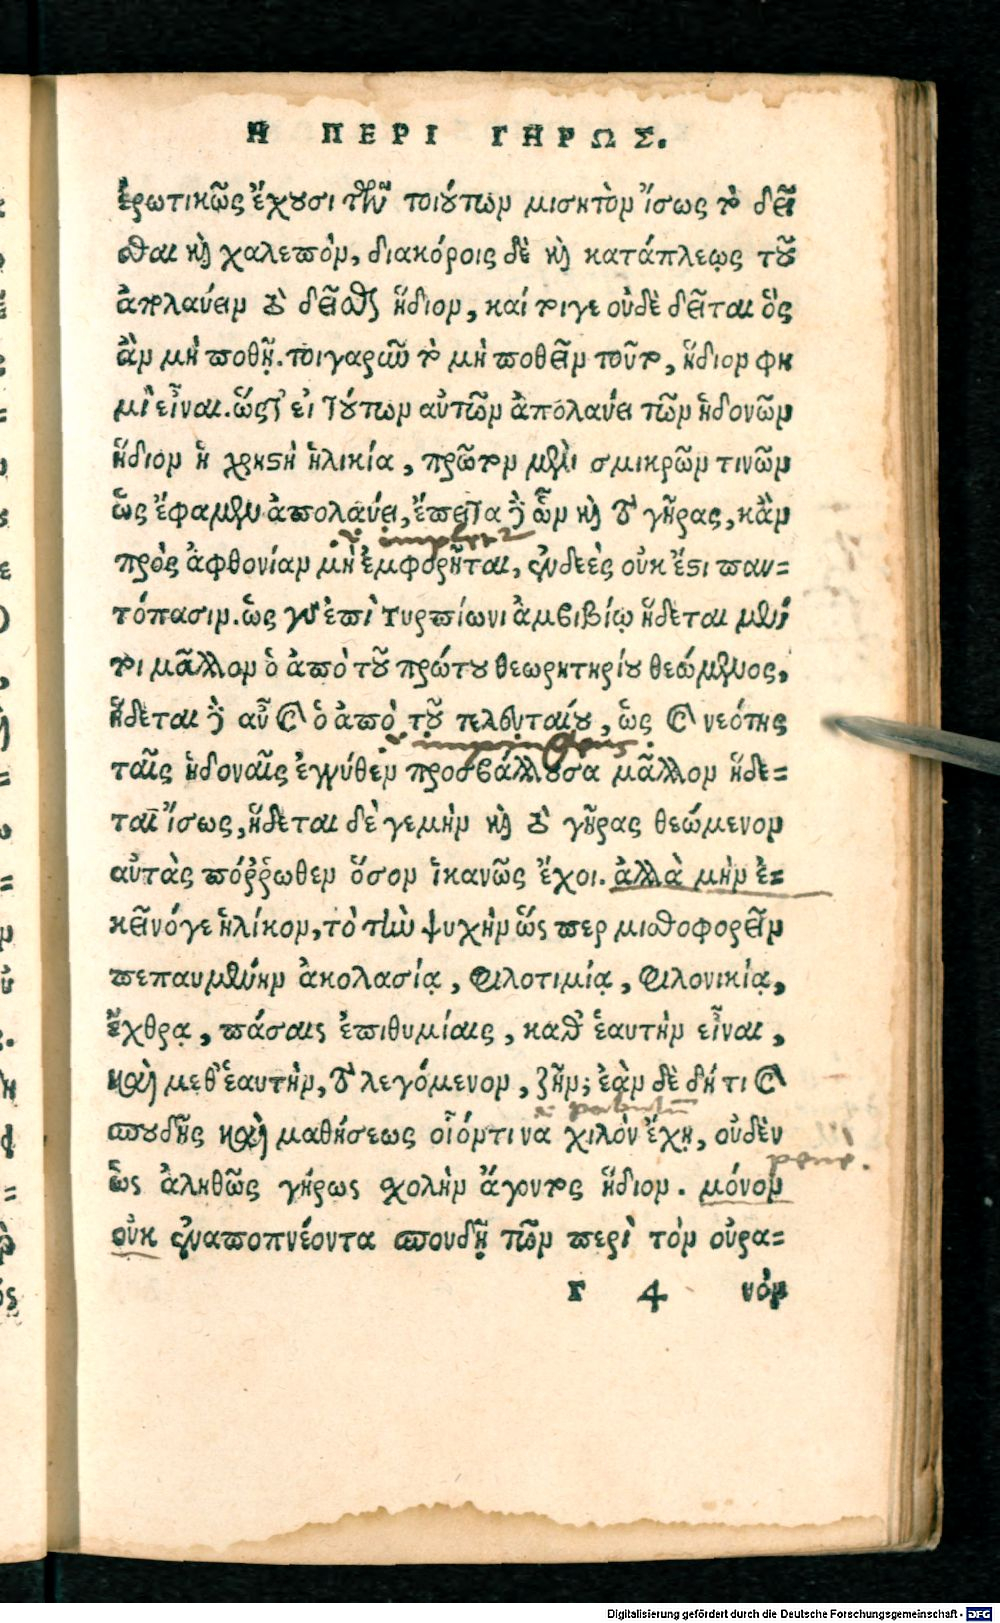 Η ΠΕΡΙ ΓΗΡΩΣ.
ἐρωτικῶς ἔχουσι τῶν τοιούτων μισητὸν ἴσως τὸ δεῖ
σθαι καὶ χαλεπὸν, διακόροις δὲ καὶ κατάπλεῳς τοῦ
ἀπολαύειν τὸ δεῖσθαι ἥδιον, καί τοιγε οὐδὲ δεῖται ὃς
ἂν μὴ ποθῇ. τοιγαροῦν τὸ μὴ ποθεῖν τοῦτο, ἥδιον φη
μὶ εἶναι. ὥστ' εἰ τούτων αὐτῶν ἀπολαύει τῶν ἡδονῶν
ἥδιον ἡ χρηστὴ ἡλικία, πρῶτον μὲν σμικρῶν τινῶν
ὡς ἔφαμεν ἀπολαύει, ἔπειτα δὲ ὧν καὶ τὸ γῆρας, κἂν
πρὸς ἀφθονίαν μὴ ἐμφορῆται, ἐνδεὲς οὐκ ἔστι παν=
τόπασιν. ὡς γὰρ ἐπὶ Τυρπίωνι ἀμβιβίῳ ἥδεται μέν
τοι μᾶλλον ὁ ἀπὸ τοῦ πρώτου θεωρητηρίου θεώμενος,
ἥδεται δὲ αὖ καὶ ὁ ἀπὸ τοῦ τελευταίου, ὡς καὶ νεότης
ταῖς ἡδοναῖς ἐγγύθεν προσβάλλουσα μᾶλλον ἥδε=
ται ἴσως, ἥδεται δὲ γεμὴν καὶ τὸ γῆρας θεώμενον
αὐτὰς πόῤῥωθεν ὅσον ἱκανῶς ἔχοι. ἀλλὰ μὴν ἐ=
κεῖνόγε ἡλίκον, τὸ τὴν ψυχὴν ὥς περ μισθοφορεῖν
πεπαυμένην ἀκολασίᾳ, φιλοτιμίᾳ, φιλονικίᾳ,
ἔχθρᾳ, πάσαις ἐπιθυμίαις, καθ' ἑαυτὴν εἶναι,
καὶ μεθ' ἑαυτὴν, τὸ λεγόμενον, ζῆν; ἐὰν δὲ δή τι καὶ
σπουδῆς καὶ μαθήσεως οἷόντινα χιλὸν ἔχῃ, οὐδὲν
ὡς ἀληθῶς γήρως σχολὴν ἄγοντος ἥδιον. μόνον
οὐκ ἐναποπνέοντα σπουδῇ τῶν περὶ τὸν οὐρα=
Γ 4 νὸν
Digitalisierung gefördert durch die Deutsche Forschungsgemeinschaft - DFG